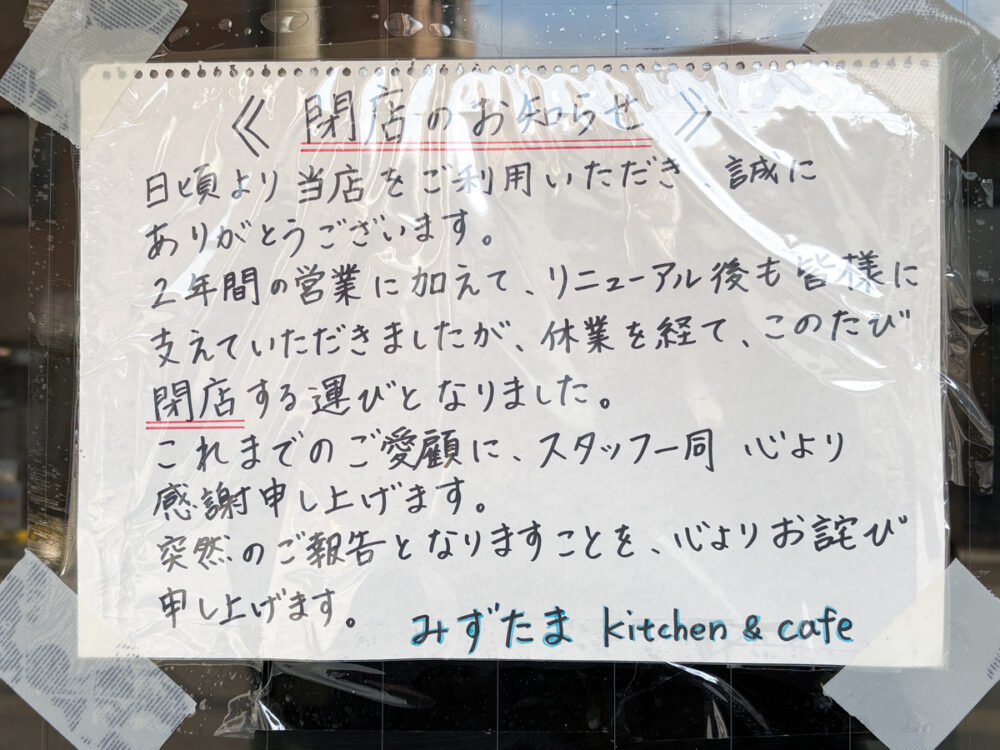 《 閉店のお知らせ 》
日頃より当店をご利用いただき、誠に
ありがとうございます。
2年間の営業に加えて、リニューアル後も皆様に
支えていただきましたが、休業を経て、このたび
閉店する運びとなりました。
これまでのご愛顧に、スタッフ一同 心より
感謝申し上げます。
突然のご報告となりますことを、心よりお詫び
申し上げます。
みずたま kitchen & cafe